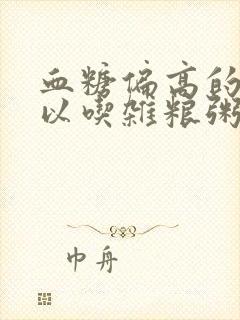 血糖偏高的
以喫雑粮粥
巾舟